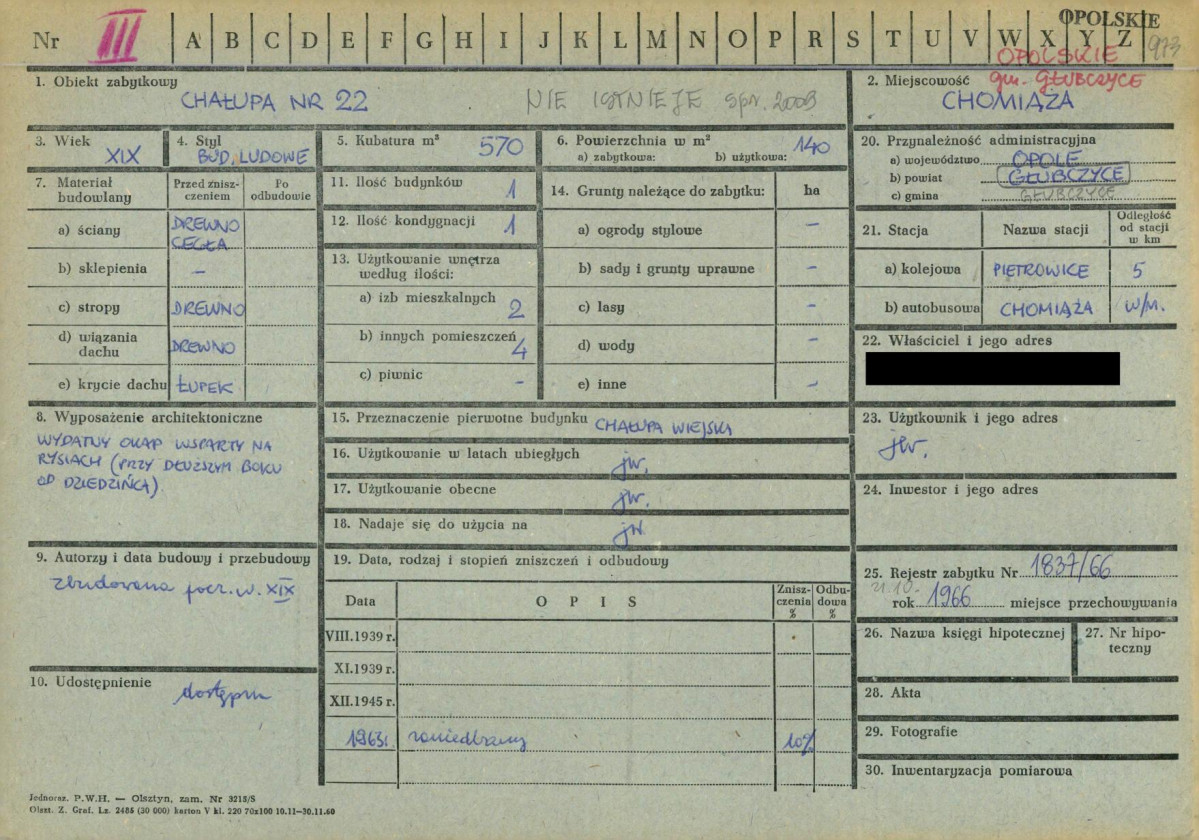 Nr III A B C D E F G H I J K L M N O P R S T U V W X Y Z
OPOLSKIE
973
OPOLSKIE
gm. GŁUBCZYCE
1. Obiekt zabytkowy
CHAŁUPA NR 22
NIE ISTNIEJE spr. 2009
2. Miejscowość
CHOMIĄŻA
3. Wiek
XIX
4. Styl
BUD. LUDOWE
5. Kubatura m³
570
6. Powierzchnia w m²
a) zabytkowa: b) użytkowa: 140
7. Materiał budowlany
Przed zniszczeniem
Po odbudowie
a) ściany DREWNO
CEGŁA
b) sklepienia –
c) stropy DREWNO
d) wiązania dachu DREWNO
e) krycie dachu ŁUPEK
8. Wyposażenie architektoniczne
WYDATNY OKAP WSPARTY NA
RYSIACH (PRZY DŁUŻSZYM BOKU
OD DZIEDZIŃCA).
9. Autorzy i data budowy i przebudowy
zbudowana pocz. w. XIX
10. Udostępnienie
dostępna
11. Ilość budynków 1
12. Ilość kondygnacji 1
13. Użytkowanie wnętrza
według ilości:
a) izb mieszkalnych 2
b) innych pomieszczeń 4
c) piwnic –
14. Grunty należące do zabytku: ha
a) ogrody stylowe –
b) sady i grunty uprawne –
c) lasy –
d) wody –
e) inne –
15. Przeznaczenie pierwotne budynku CHAŁUPA WIEJSKA
16. Użytkowanie w latach ubiegłych jw.
17. Użytkowanie obecne jw.
18. Nadaje się do użycia na jw.
19. Data, rodzaj i stopień zniszczeń i odbudowy
Data OPIS Zniszczenia % Odbudowa %
VIII.1939 r.
XI.1939 r.
XII.1945 r.
1963r. zaniedbany 10%
20. Przynależność administracyjna
a) województwo OPOLE
b) powiat GŁUBCZYCE
c) gmina GŁUBCZYCE
21. Stacja Nazwa stacji Odległość od stacji w km
a) kolejowa PIETROWICE 5
b) autobusowa CHOMIĄŻA W/M.
22. Właściciel i jego adres
23. Użytkownik i jego adres
jw.
24. Inwestor i jego adres
25. Rejestr zabytku Nr 1837/66
21.10.
rok 1966 miejsce przechowywania
26. Nazwa księgi hipotecznej
27. Nr hipoteczny
28. Akta
29. Fotografie
30. Inwentaryzacja pomiarowa
Jednoraz. P.W.H. — Olsztyn, zam. Nr 3215/S
Olszt. Z. Graf. Lz. 2485 (30 000) karton V kl. 220 70x100 10.11—30.11.60